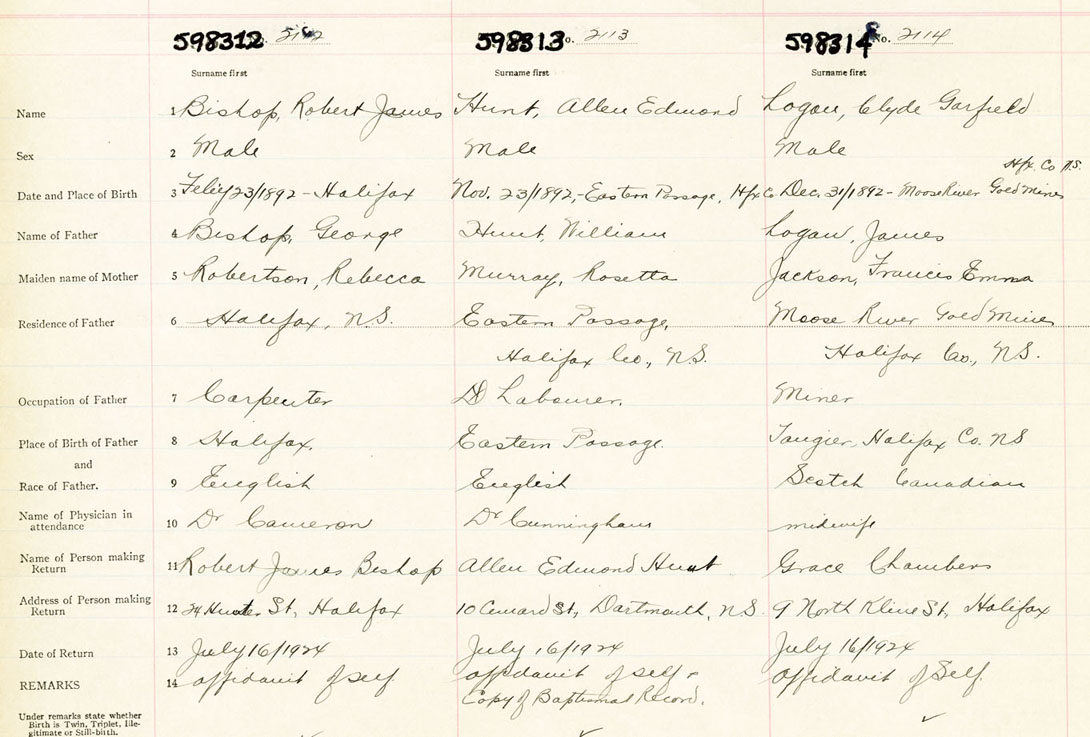 598312 No. 2112 598313 No. 2113 598314 No. 2114
Surname first Surname first Surname first
Name 1 Bishop, Robert James Hunt, Allen Edmond Logan, Clyde Garfield
Sex 2 Male Male Male
Hfx. Co N.S.
Date and Place of Birth 3 23/1892 - Halifax Nov. 23/1892,- Eastern Passage, Hfx Co. Dec. 31/1892 - Moose River Gold Mines
Name of Father 4 Bishop, George Hunt, William Logan, James
Maiden name of Mother 5 Robertson, Rebecca Murray, Rosetta Jackson, Frances Emma
Residence of Father 6 Halifax, N.S. Eastern Passage, Moose River Gold Mines
Halifax Co., N.S. Halifax Co., N.S.
Occupation of Father 7 Carpenter Labourer. Miner
Place of Birth of Father 8 Halifax. Eastern Passage. Tangier, Halifax Co. N S
and
Race of Father. 9 English English Scotch Canadian
Name of Physician in
attendance 10 Dr Cameron Dr Cunningham midwife
Name of Person making
Return 11 Robert James Bishop Allen Edmond Hunt Grace Chambers
Address of Person making
Return 12 St, Halifax 10 St, Dartmouth, N.S. 9 North Kline St, Halifax
Date of Return 13 July 16/1924 July 16/1924 July 16/1924
REMARKS 14 affidavit of self affidavit of self & affidavit of Self.
Copy of Baptismal Record.
Under remarks state whether
Birth is Twin, Triplet, Ille-
gitimate or Still-birth.